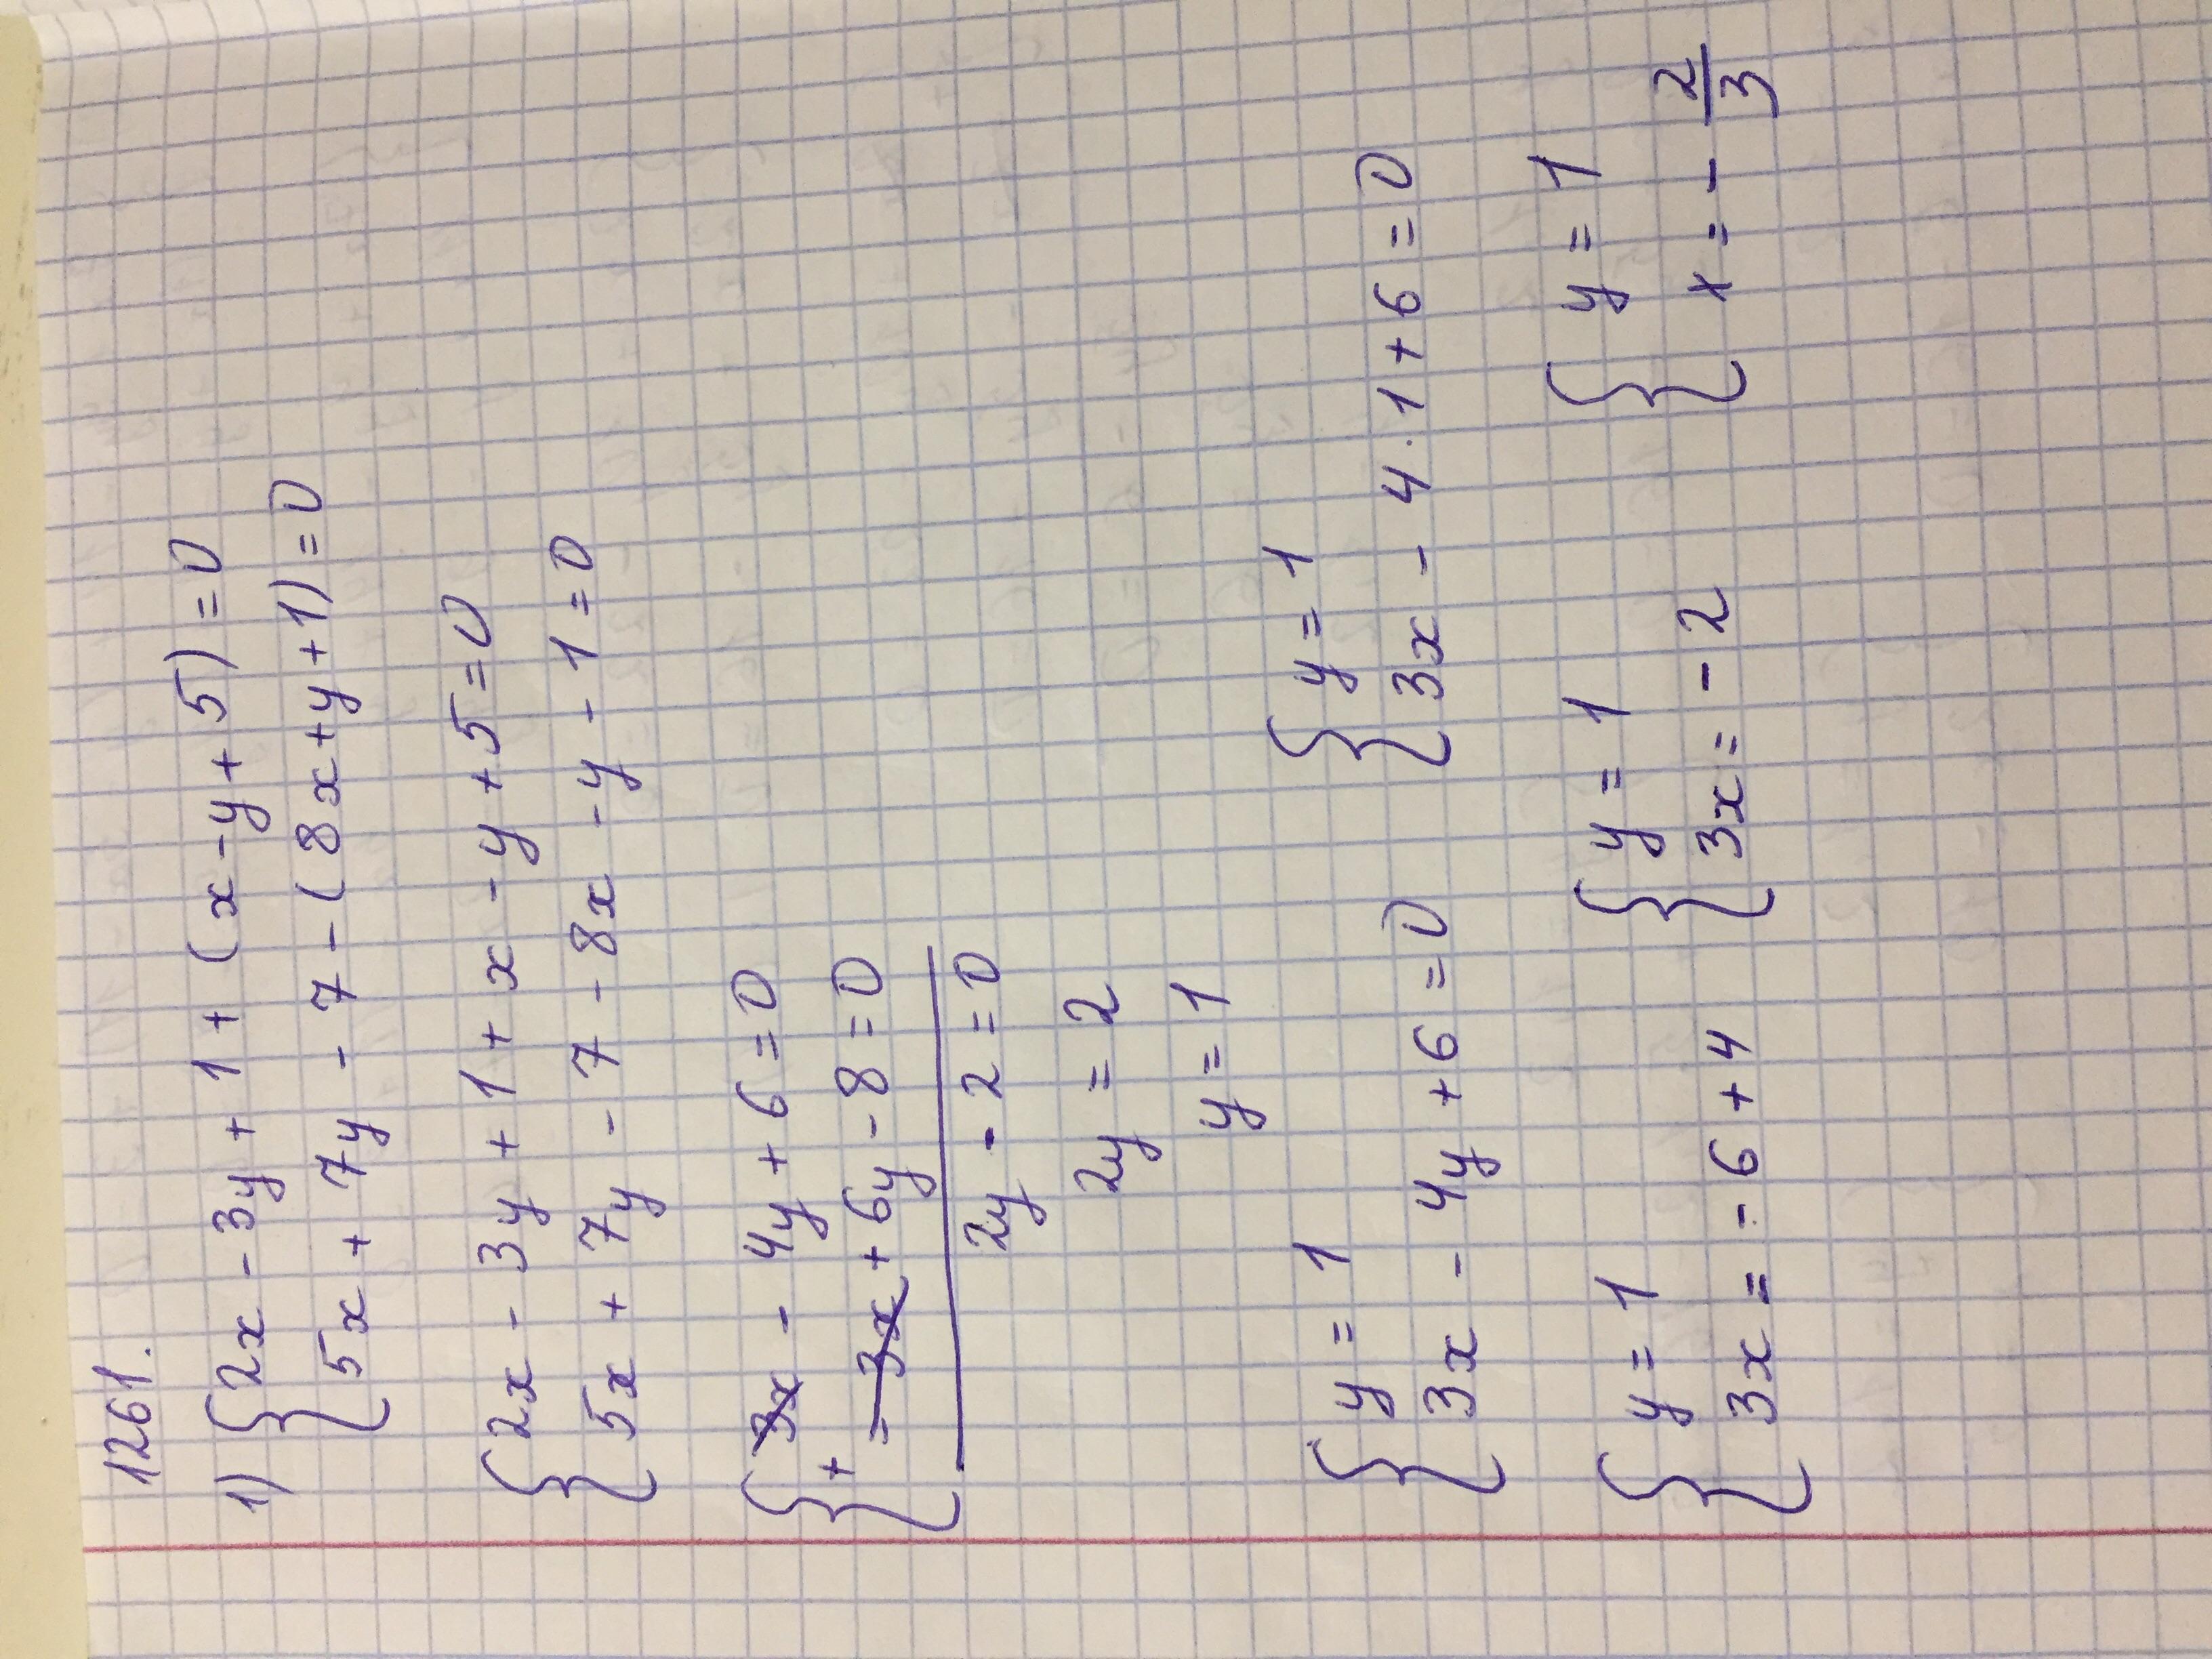 1261.
1) { 2x - 3y + 1 + (x - y + 5) = 0
5x + 7y - 7 - (8x + y + 1) = 0
{ 2x - 3y + 1 + x - y + 5 = 0
5x + 7y - 7 - 8x - y - 1 = 0
{ 3x - 4y + 6 = 0
+ -3x + 6y - 8 = 0
2y - 2 = 0
2y = 2
y = 1
{ y = 1 { y = 1
3x - 4y + 6 = 0 3x - 4 · 1 + 6 = 0
{ y = 1 { y = 1 { y = 1
3x = -6 + 4 3x = -2 x = - 2/3